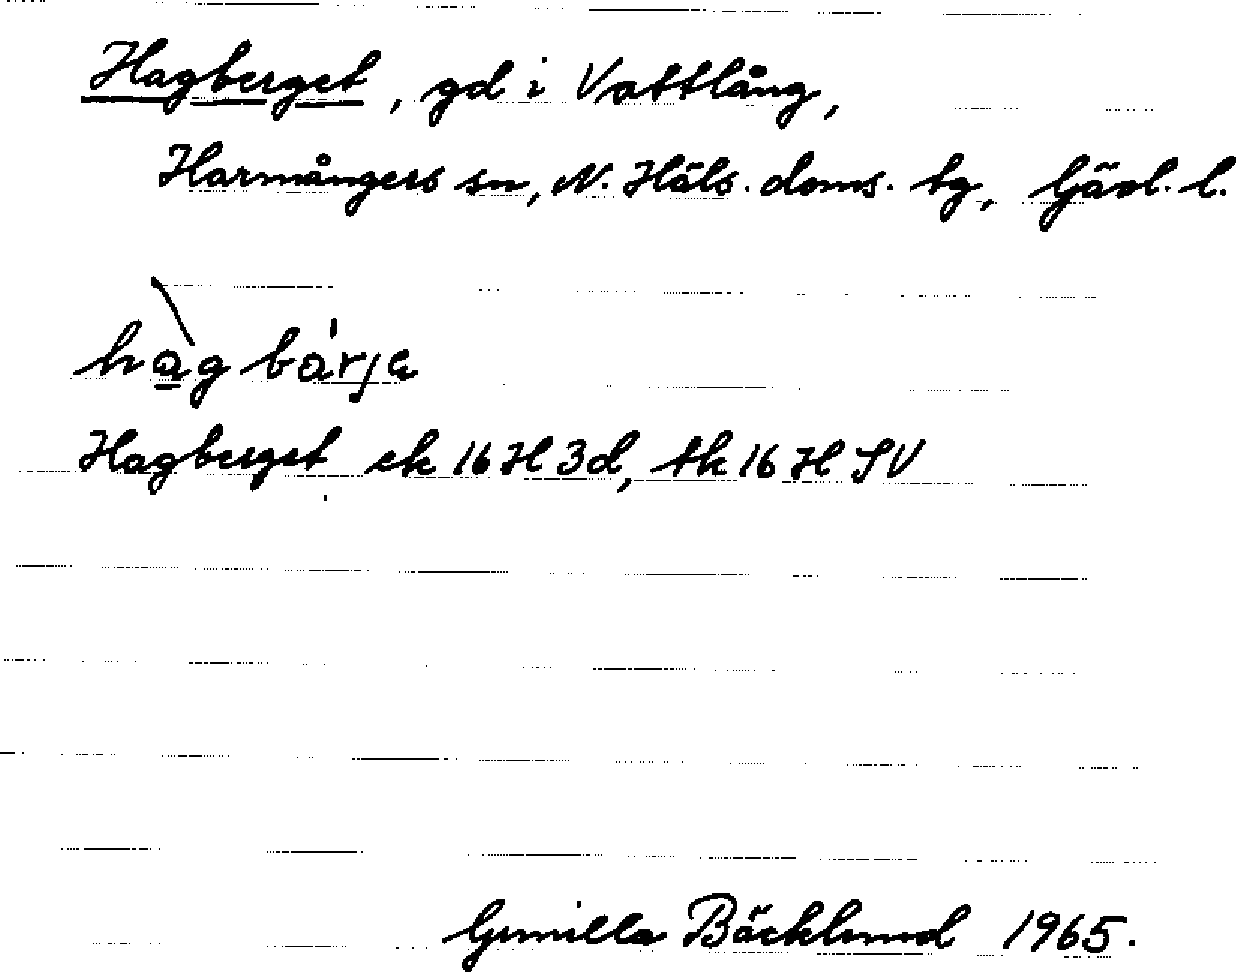 Hagberget, gd i Vattlång,
Harmångers sn, N. Häls. doms. tg, Gävl. l.
hàg bárje
Hagberget ek 16 H 3d, tk 16 H SV
Gunilla Bäcklund 1965.